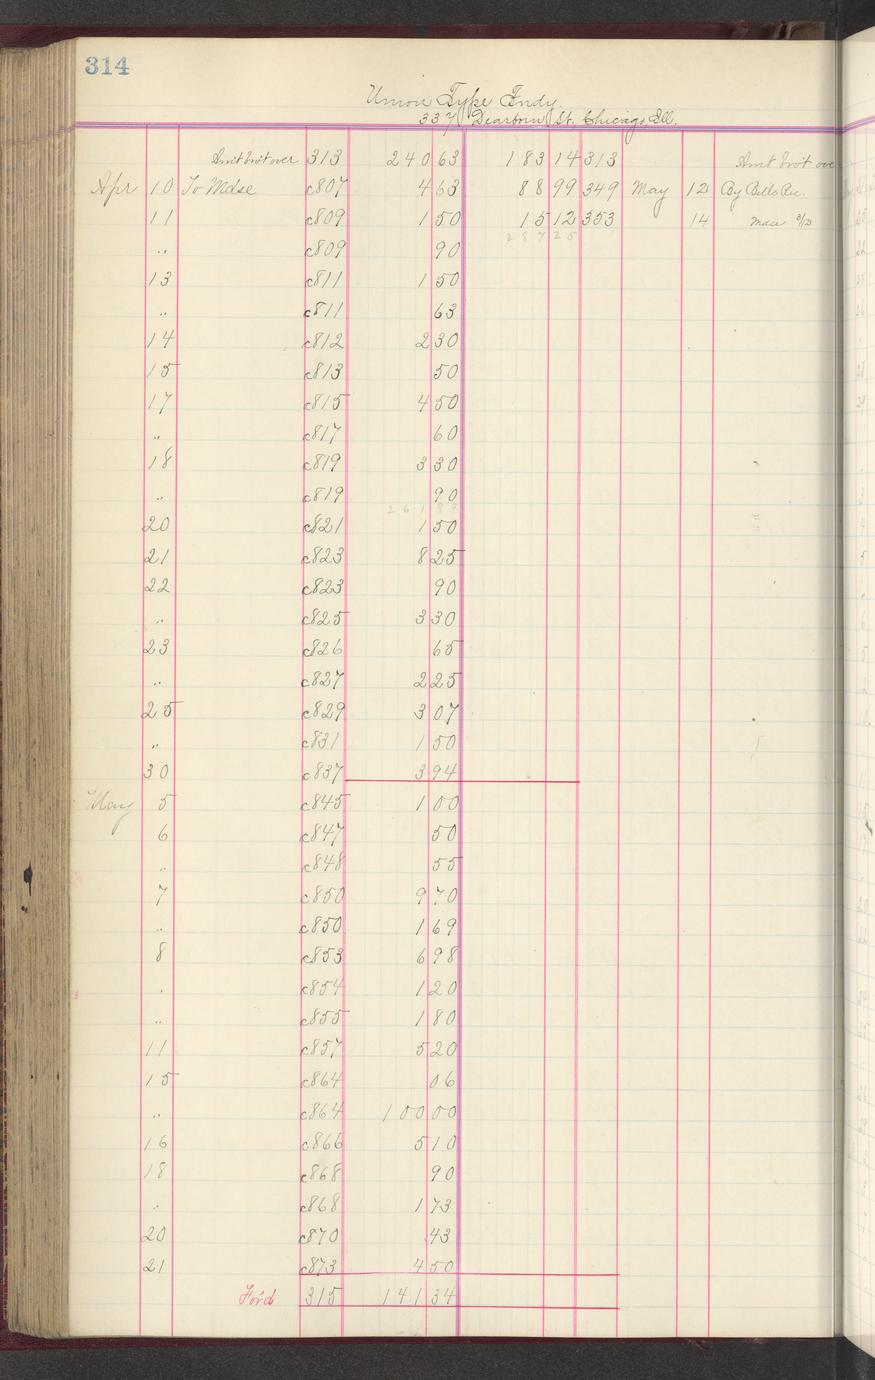 314
Union Type Fndy.
337 Dearborn St. Chicago, Ill.
Amt brot over 313 240 63 183 14 313 Amt brot ove
Apr 10 To Mdse c807 4 63 88 99 349 May 12 By Bills Rec.
11 c809 1 50 15 12 353 14 Mdse
287 25
" c809 90
13 c811 1 50
" c811 63
14 c812 2 30
15 c813 50
17 c815 4 50
" c817 60
18 c819 3 30
" c819 90
20 c821 1 50
21 c823 8 25
22 c823 90
" c825 3 30
23 c826 65
" c827 2 25
25 c829 3 07
" c831 1 50
30 c837 3 94
May 5 c845 1 00
6 c847 50
" c848 55
7 c850 9 70
" c850 1 69
8 c853 6 98
" c854 1 20
" c855 1 80
11 c857 5 20
15 c864 06
" c864 100 00
16 c866 5 10
18 c868 90
" c868 1 73
20 c870 43
21 c873 4 50
For'd 315 141 34